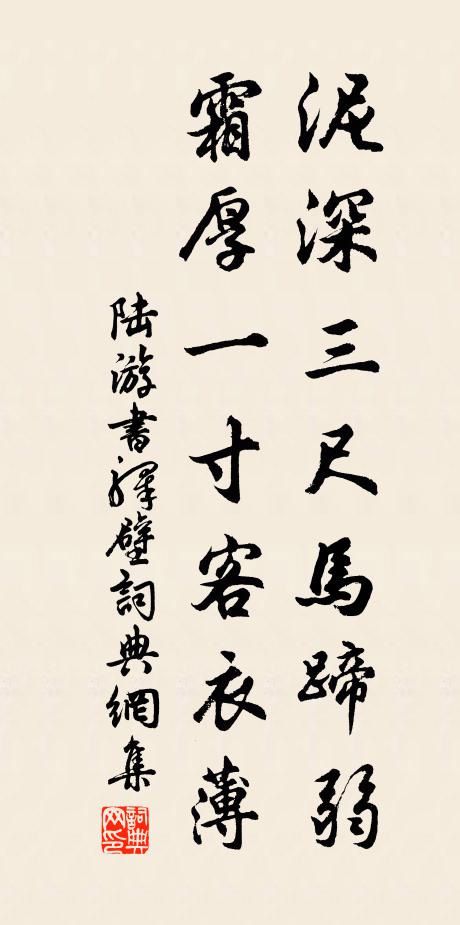 泥深三尺馬蹄弱
霜厚一寸客衣薄
陸游書驛壁詞典網集
詞典网印